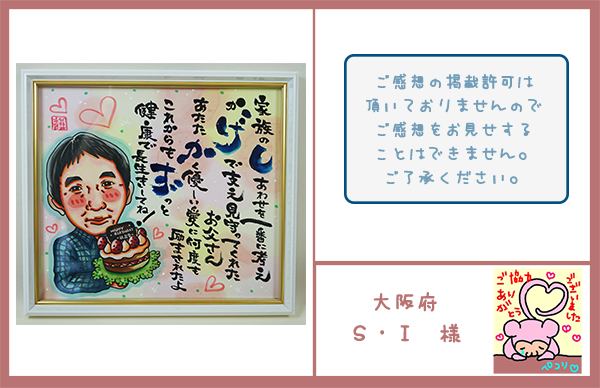 家族のしあわせを一番に考え
かげで支え見守ってくれた
お父さん
あたたかく優しい愛に何度も
励まされたよ
これからもずっと
健康で長生きしてね!
HAPPY BIRTHDAY
ご感想の掲載許可は
頂いておりませんので
ご感想をお見せする
ことはできません。
ご了承ください。
大阪府
S・I 様
ご協力
ありがとう
ございました
ペコリ